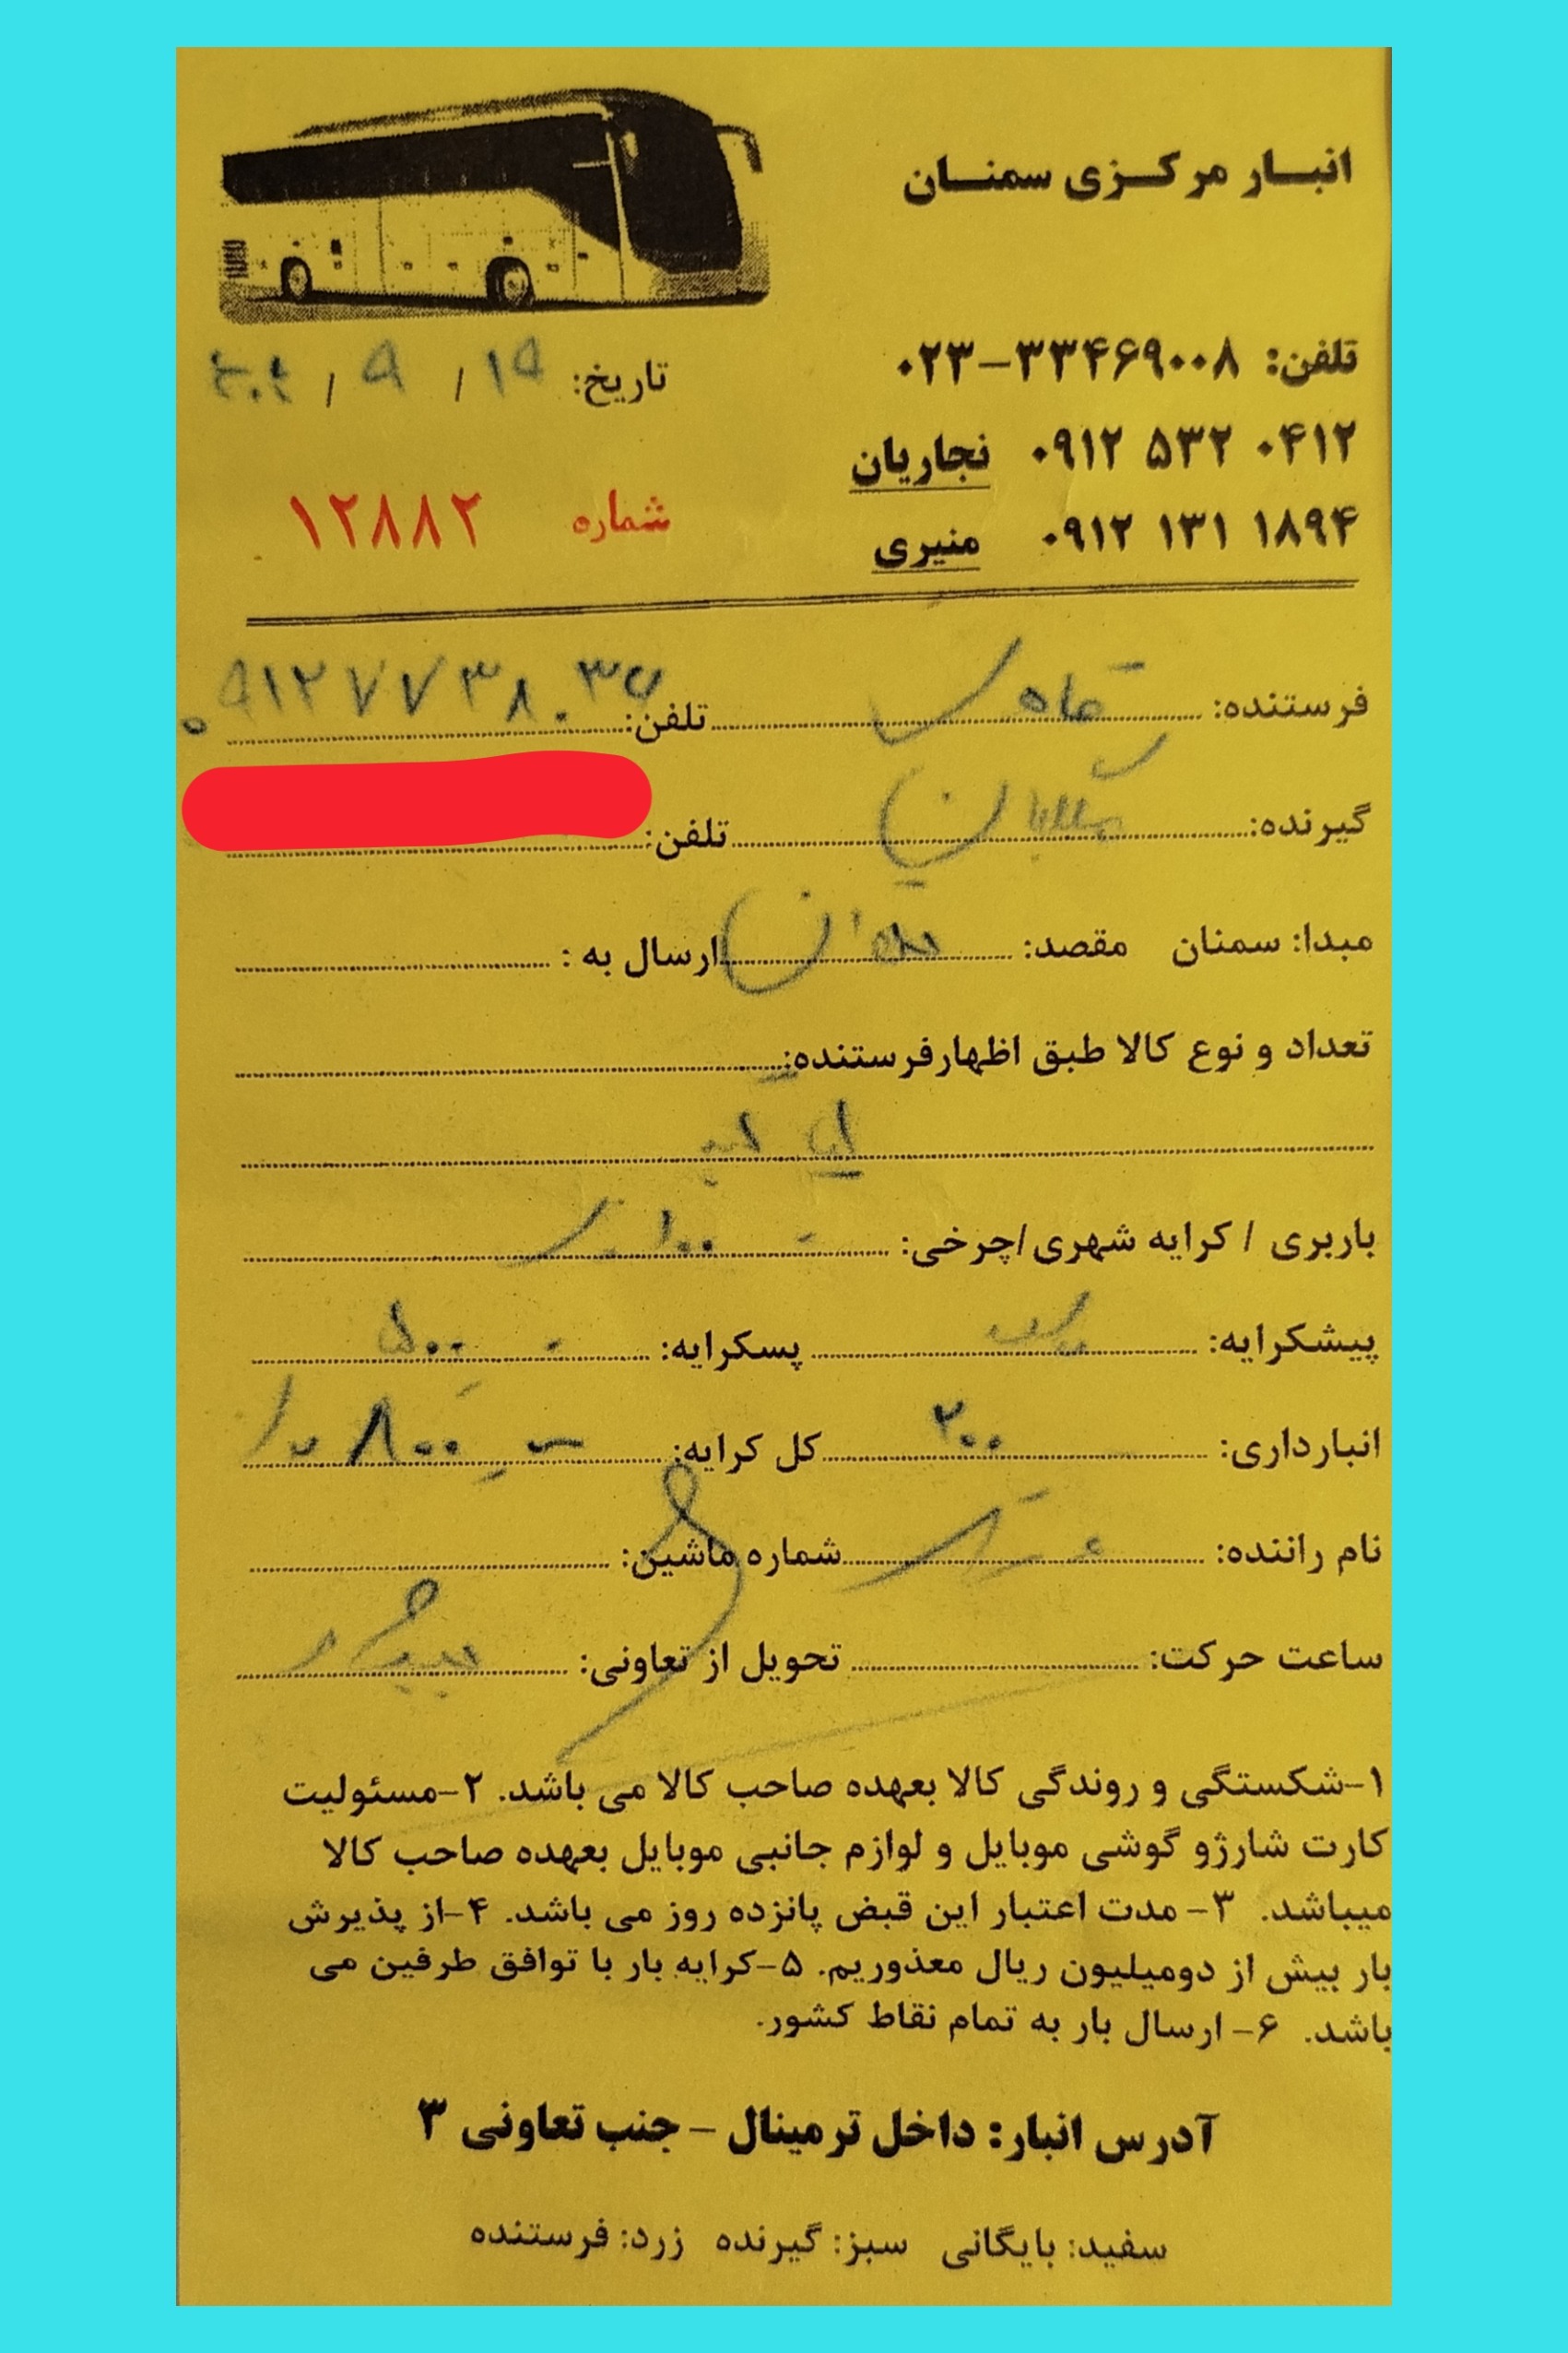 انبار مرکزی سمنان
تلفن: ۳۳۴۶۹۰۰۸-۰۲۳
۰۹۱۲ ۵۳۲ ۰۴۱۲ نجاریان
۰۹۱۲ ۱۳۱ ۱۸۹۴ منیری
تاریخ: ۱۹ / ۹ /
شماره ۱۲۸۸۲
فرستنده: تلفن:
گیرنده: تلفن:
مبدا: سمنان مقصد: ارسال به :
تعداد و نوع کالا طبق اظهارفرستنده:
باربری / کرایه شهری/چرخی: ۱۰۰
پیشکرایه: پسکرایه: ۵۰۰
انبارداری: ۲۰۰ کل کرایه: ۸۰۰
نام راننده: شماره ماشین:
ساعت حرکت: تحویل از تعاونی:
۱-شکستگی و روندگی کالا بعهده صاحب کالا می باشد. ۲-مسئولیت
کارت شارژو گوشی موبایل و لوازم جانبی موبایل بعهده صاحب کالا
میباشد. ۳- مدت اعتبار این قبض پانزده روز می باشد. ۴-از پذیرش
بار بیش از دومیلیون ریال معذوریم. ۵-کرایه بار با توافق طرفین می
باشد. ۶- ارسال بار به تمام نقاط کشور.
آدرس انبار: داخل ترمینال - جنب تعاونی ۳
سفید: بایگانی سبز: گیرنده زرد: فرستنده